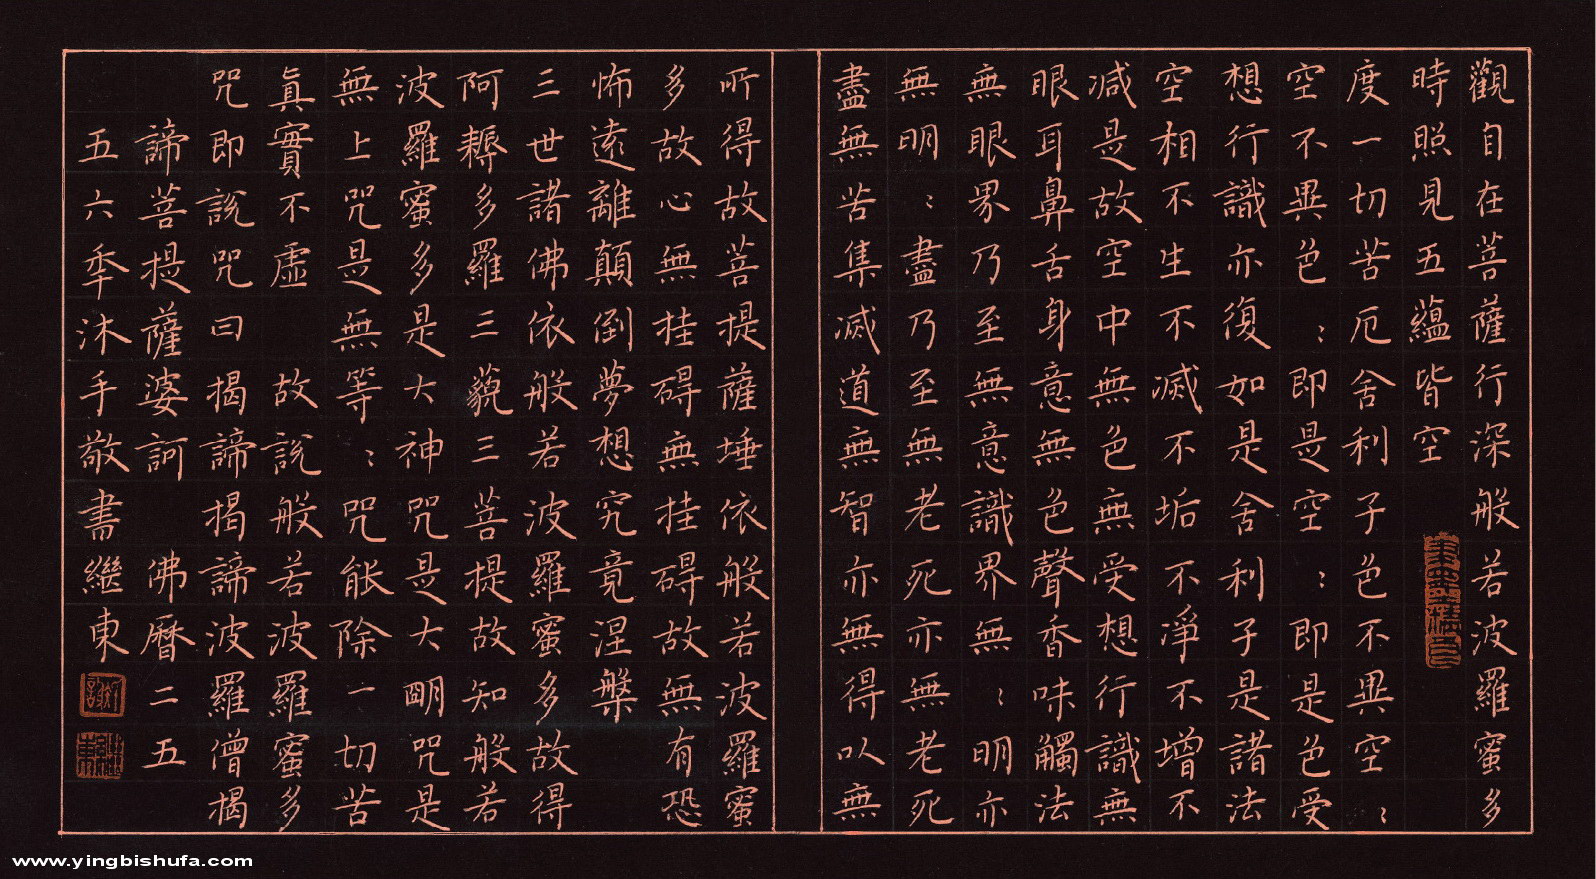 觀自在菩薩行深般若波羅蜜多
時照見五蘊皆空
度一切苦厄舍利子色不異空〻
空不異色〻即是空〻即是色受
想行識亦復如是舍利子是諸法
空相不生不滅不垢不淨不增不
減是故空中無色無受想行識無
眼耳鼻舌身意無色聲香味觸法
無眼界乃至無意識界無〻明亦
無明〻盡乃至無老死亦無老死
盡無苦集滅道無智亦無得以無
所得故菩提薩埵依般若波羅蜜
多故心無挂碍無挂碍故無有恐
怖遠離顛倒夢想究竟涅槃
三世諸佛依般若波羅蜜多故得
阿耨多羅三藐三菩提故知般若
波羅蜜多是大神咒是大明咒是
無上咒是無等〻咒能除一切苦
真實不虛 故說般若波羅蜜多
咒即說咒曰揭諦揭諦波羅僧揭
諦菩提薩婆訶 佛曆二五
五六年沐手敬書繼東
www.yingbishufa.com